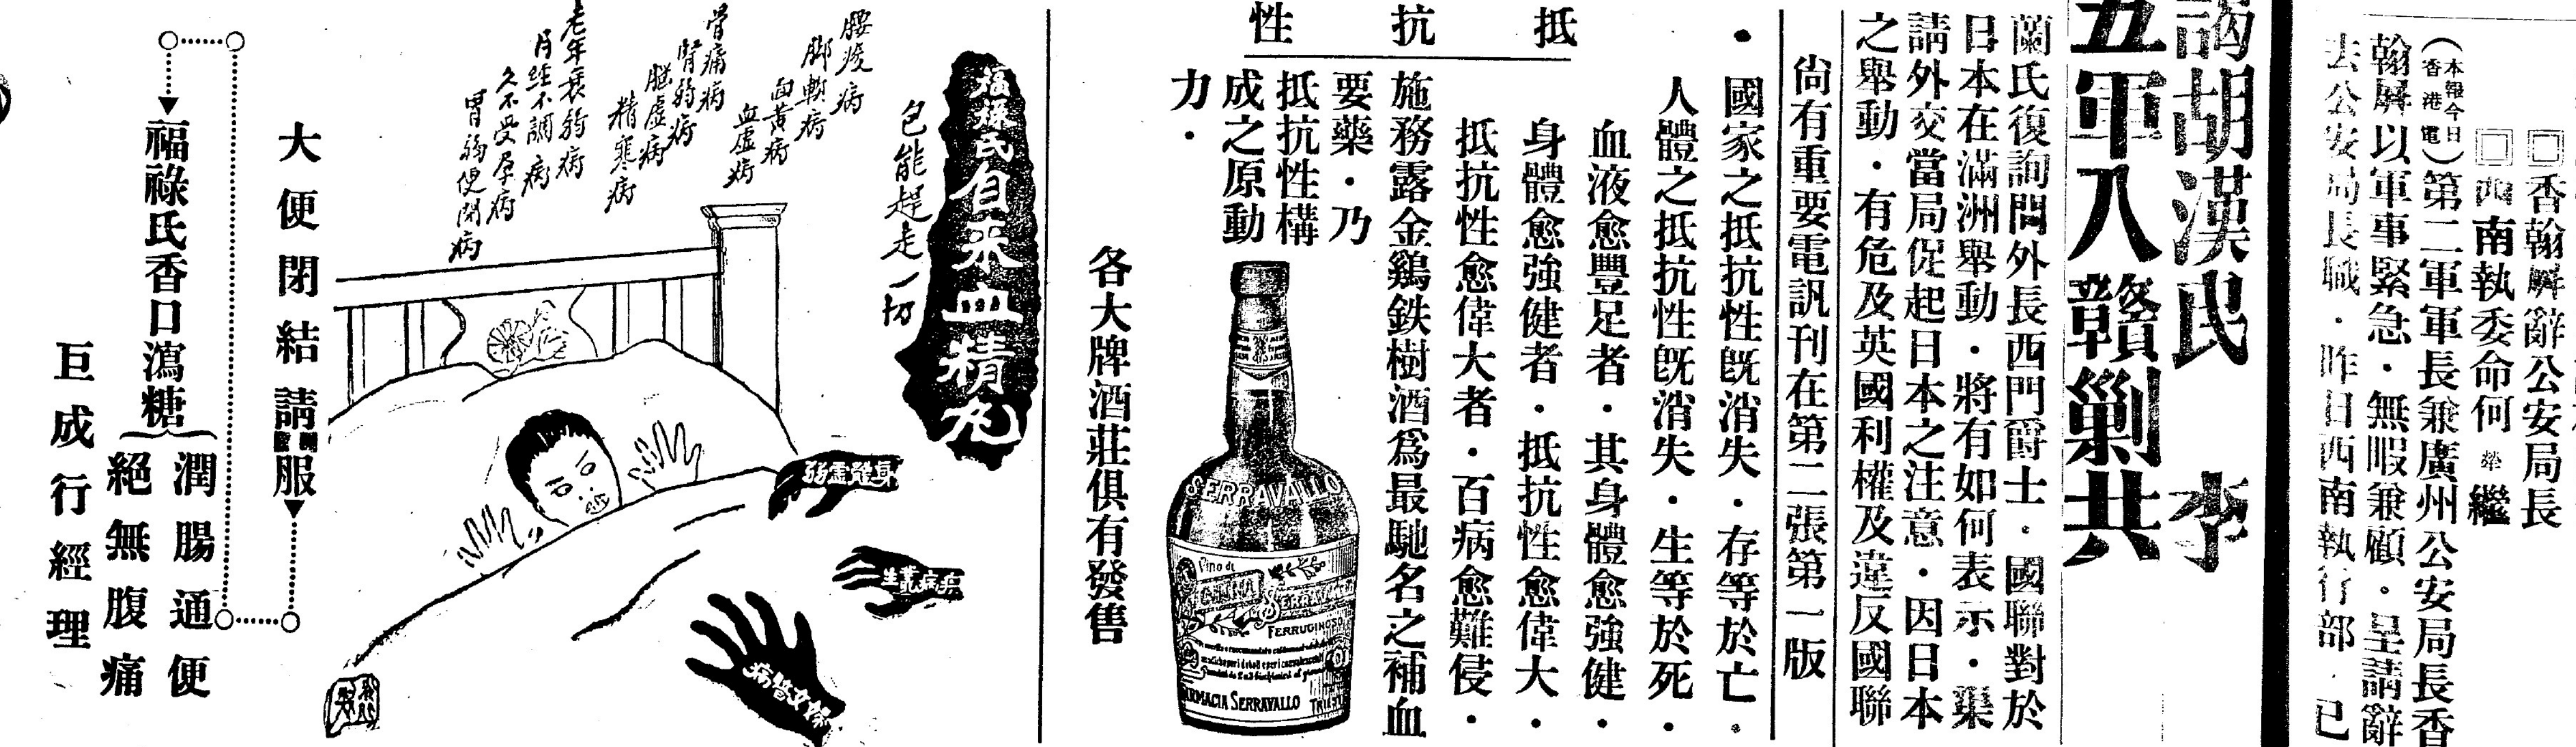 □香翰屏辭公安局長
□西南執委命何犖繼
(本報今日
香港電)第二軍軍長兼廣州公安局長香
翰屏以軍事緊急·無暇兼顧·呈請辭
去公安局長職·昨日西南執行部·已
謁胡漢民 李
五軍入贛剿共
蘭氏復詢問外長西門爵士·國聯對於
日本在滿洲舉動·將有如何表示·渠
請外交當局促起日本之注意·因日本
之舉動·有危及英國利權及違反國聯
尙有重要電訊刊在第二張第一版
抵抗性
·國家之抵抗性旣消失·存等於亡·
人體之抵抗性旣消失·生等於死·
血液愈豐足者·其身體愈強健·
身體愈強健者·抵抗性愈偉大·
抵抗性愈偉大者·百病愈難侵·
施務露金鷄鉄樹酒爲最馳名之補血
要藥·乃
抵抗性構
成之原動
力·
SERRAVALLO
Vino di
CHINA
SERRAVALLO
FERRUGINOSO
FARMACIA SERRAVALLO TRIESTE
各大牌酒莊俱有發售
福祿氏自來血精丸
包能趕走一切
腰痠病
脚軟病
面黃病
血虛病
骨痛病
腎弱病
腦虛病
精寒病
老年衰弱病
月經不調病
久不受孕病
胃弱便閉病
身體虛弱
大便閉結請服
福祿氏香口瀉糖
潤腸通便
絕無腹痛
巨成行經理